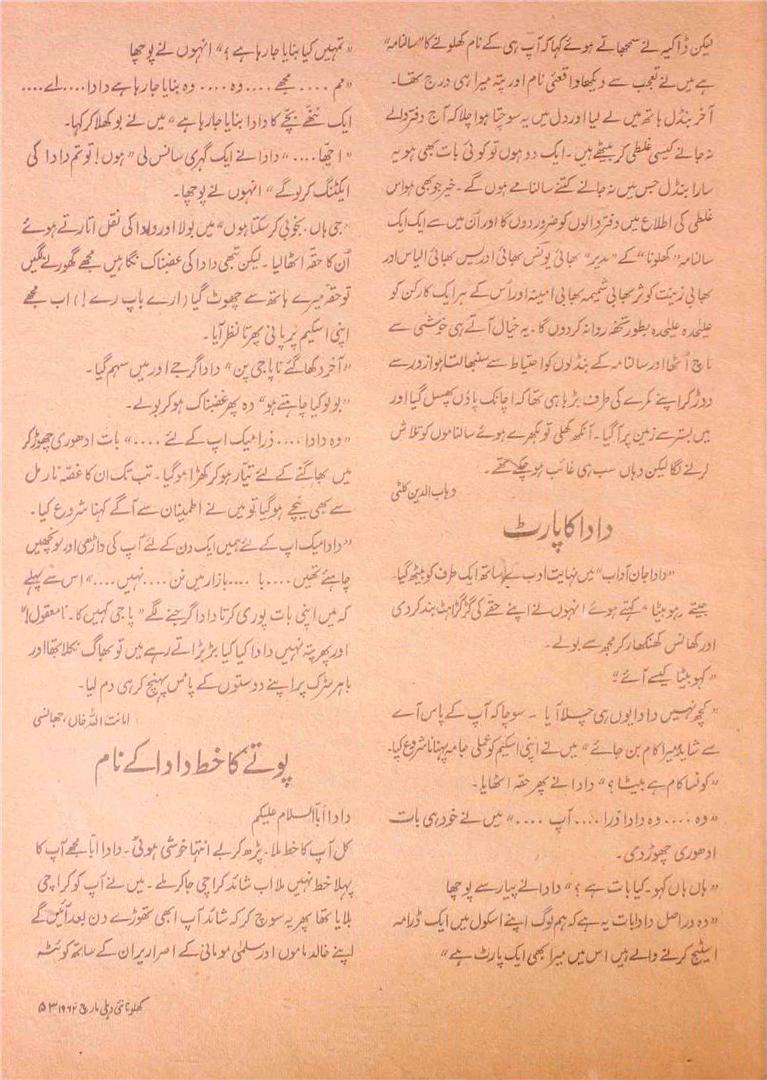 لیکن ڈاکیہ نے سمجھاتے ہوئے کہا کہ آپ ہی کے نام کھلونے کا "سالنامہ"
ہے میں نے تعجب سے دیکھا واقعی نام اور پتہ میرا ہی درج تھا۔
آخر بنڈل ہاتھ میں لے لیا اور دل میں یہ سوچتا ہوا چلا کہ آج دفتر والے
نہ جانے کیسی غلطی کر بیٹھے ہیں۔ ایک دو ہوں تو کوئی بات بھی ہو یہ
سارا بنڈل جس میں نہ جانے کتنے سالنامے ہوں گے۔ خیر جو بھی ہو اس
غلطی کی اطلاع میں دفتر والوں کو ضرور دوں گا اور اُن میں سے ایک ایک
سالنامہ "کھلونا" کے "مدیر" بھائی یونس بھائی ادریس بھائی الیاس اور
بھابی زینت کوثر بھابی شمیمہ بھابی امینہ اور اُس کے ہر ایک کارکن کو
علیحدہ علیحدہ بطور تحفہ روانہ کردوں گا۔ یہ خیال آتے ہی خوشی سے
ناچ اُٹھا اور سالنامہ کے بنڈلوں کو احتیاط سے سنبھالتا ہوا زور سے
دوڑ کر اپنے کمرے کی طرف بڑھا ہی تھا کہ اچانک پاؤں پھسل گیا اور
میں بستر سے زمین پر آگیا۔ آنکھ کھلی تو بکھرے ہوئے سالناموں کو تلاش
کرنے لگا لیکن وہاں سب ہی غائب ہوچکے تھے۔
وہاب الدین کلٹی
دادا کا پارٹ
"دادا جان آداب" میں نہایت ادب کے ساتھ ایک طرف کو بیٹھ گیا۔
جیتے رہو بیٹا" کہتے ہوئے انہوں نے اپنے حقے کی گڑگڑاہٹ بند کردی
اور کھانس کھنکھار کر مجھ سے بولے۔
"کہو بیٹا کیسے آئے؟"
"کچھ نہیں دادا یوں ہی چلا آیا ۔ سوچا کہ آپ کے پاس آے
سے شاید میرا کام بن جائے" میں نے اپنی اسکیم کو عملی جامہ پہنانا شروع کیا۔
"کونسا کام ہے بیٹا؟" دادا نے پھر حقہ اٹھایا۔
"وہ .... وہ دادا ذرا .... آپ ...." میں نے خود ہی بات
ادھوری چھوڑ دی۔
"ہاں ہاں کہو۔ کیا بات ہے؟" دادا نے پیار سے پوچھا
"وہ دراصل دادا بات یہ ہے کہ ہم لوگ اپنے اسکول میں ایک ڈرامہ
اسٹیج کرنے والے ہیں اس میں میرا بھی ایک پارٹ ہے"
"تمہیں کیا بنایا جارہا ہے؟" انہوں نے پوچھا
"مم .... مجھے .... وہ .... وہ بنایا جارہا ہے دادا .... اے ....
ایک ننھے بچے کا دادا بنایا جارہا ہے" میں نے بوکھلا کر کہا۔
"اچھا ...." دادا نے ایک گہری سانس لی "ہوں! تو تم دادا کی
ایکٹنگ کروگے" انہوں نے پوچھا۔
"جی ہاں بخوبی کرسکتا ہوں" میں بولا اور دادا کی نقل اتارتے ہوئے
اُن کا حقہ اٹھالیا۔ لیکن تبھی دادا کی غضبناک نگاہیں مجھے گھورنے لگیں
تو حقہ میرے ہاتھ سے چھوٹ گیا (ارے باپ رے!) اب مجھے
اپنی اسکیم پر پانی پھرتا نظر آیا۔
"آخر دکھا گئے نا پاجی پن" دادا گرجے اور میں سہم گیا۔
"بولو کیا چاہتے ہو" وہ پھر غضبناک ہوکر بولے۔
"وہ دادا .... ذرا میک اپ کے لئے ...." بات ادھوری چھوڑ کر
میں بھاگنے کے لئے تیار ہوکر کھڑا ہوگیا۔ تب تک ان کا غصہ نارمل
سے بھی نیچے ہوگیا تو میں نے اطمینان سے آگے کہنا شروع کیا۔
"دادا میک اپ کے لئے ہمیں ایک دن کے لئے آپ کی داڑھی اور مونچھیں
چاہئے تھیں .... با .... بازار میں نن .... نہیں ...." اس سے پہلے
کہ میں اپنی بات پوری کرتا دادا گرجنے لگے "پاجی کہیں کا۔ نامعقول!"
اور پھر پتہ نہیں دادا کیا کیا بڑبڑاتے رہے میں تو بھاگ نکلا تھا اور
باہر سڑک پر اپنے دوستوں کے پاس پہنچ کر ہی دم لیا۔
امانت اللہ خاں، جھانسی
پوتے کا خط دادا کے نام
دادا ابّا السلام علیکم
کل آپ کا خط ملا۔ پڑھ کر بے انتہا خوشی ہوئی۔ دادا ابّا مجھے آپ کا
پہلا خط نہیں ملا اب شائد کراچی جا کر ملے۔ میں نے آپ کو کراچی
بلایا تھا پھر یہ سوچ کر کہ شائد آپ ابھی تھوڑے دن بعد آئیں گے
اپنے خالد ماموں اور سلمٰی مومانی کے اصرار پر ان کے ساتھ کوئٹہ
کھلونا نئی دہلی مارچ ۱۹۶۲ ۵۳